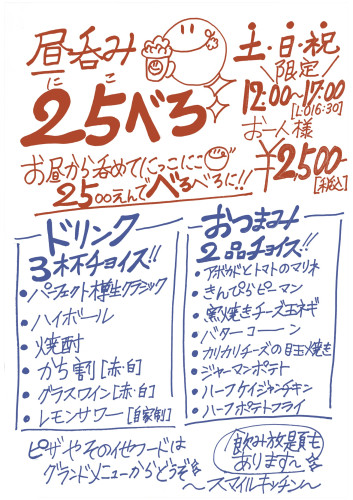 昼呑み
にこ
25べろ
土・日・祝
限定
12:00〜17:00
[L.O16:30]
お一人様
¥2,500-
[税込]
お昼から呑めてにっこにこ
2500えんでべろべろに!!
ドリンク
3杯チョイス!!
・パーフェクト樽生クラシック
・ハイボール
・焼酎
・かち割[赤・白]
・グラスワイン[赤・白]
・レモンサワー[自家製]
おつまみ
2品チョイス!!
・アボカドとトマトのマリネ
・きんぴらピーマン
・窯焼きチーズ玉ネギ
・バターコーーン
・カリカリチーズの目玉焼き
・ジャーマンポテト
・ハーフケイジャンチキン
・ハーフポテトフライ
ピザやその他フードは
グランドメニューからどうぞ
飲み放題も
あります〜
〜スマイルキッチン〜